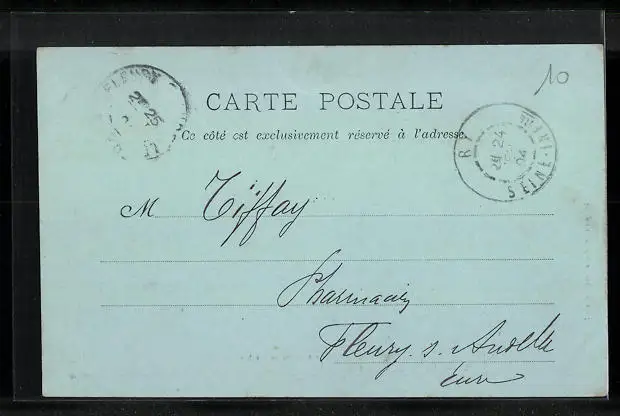 10
CARTE POSTALE
Ce côté est exclusivement réservé à l'adresse.
FLEURY
25
RY
24
04
SEINE-INFRE
M Tiffay
Pharmacien
Fleury s. Andelle
Eure